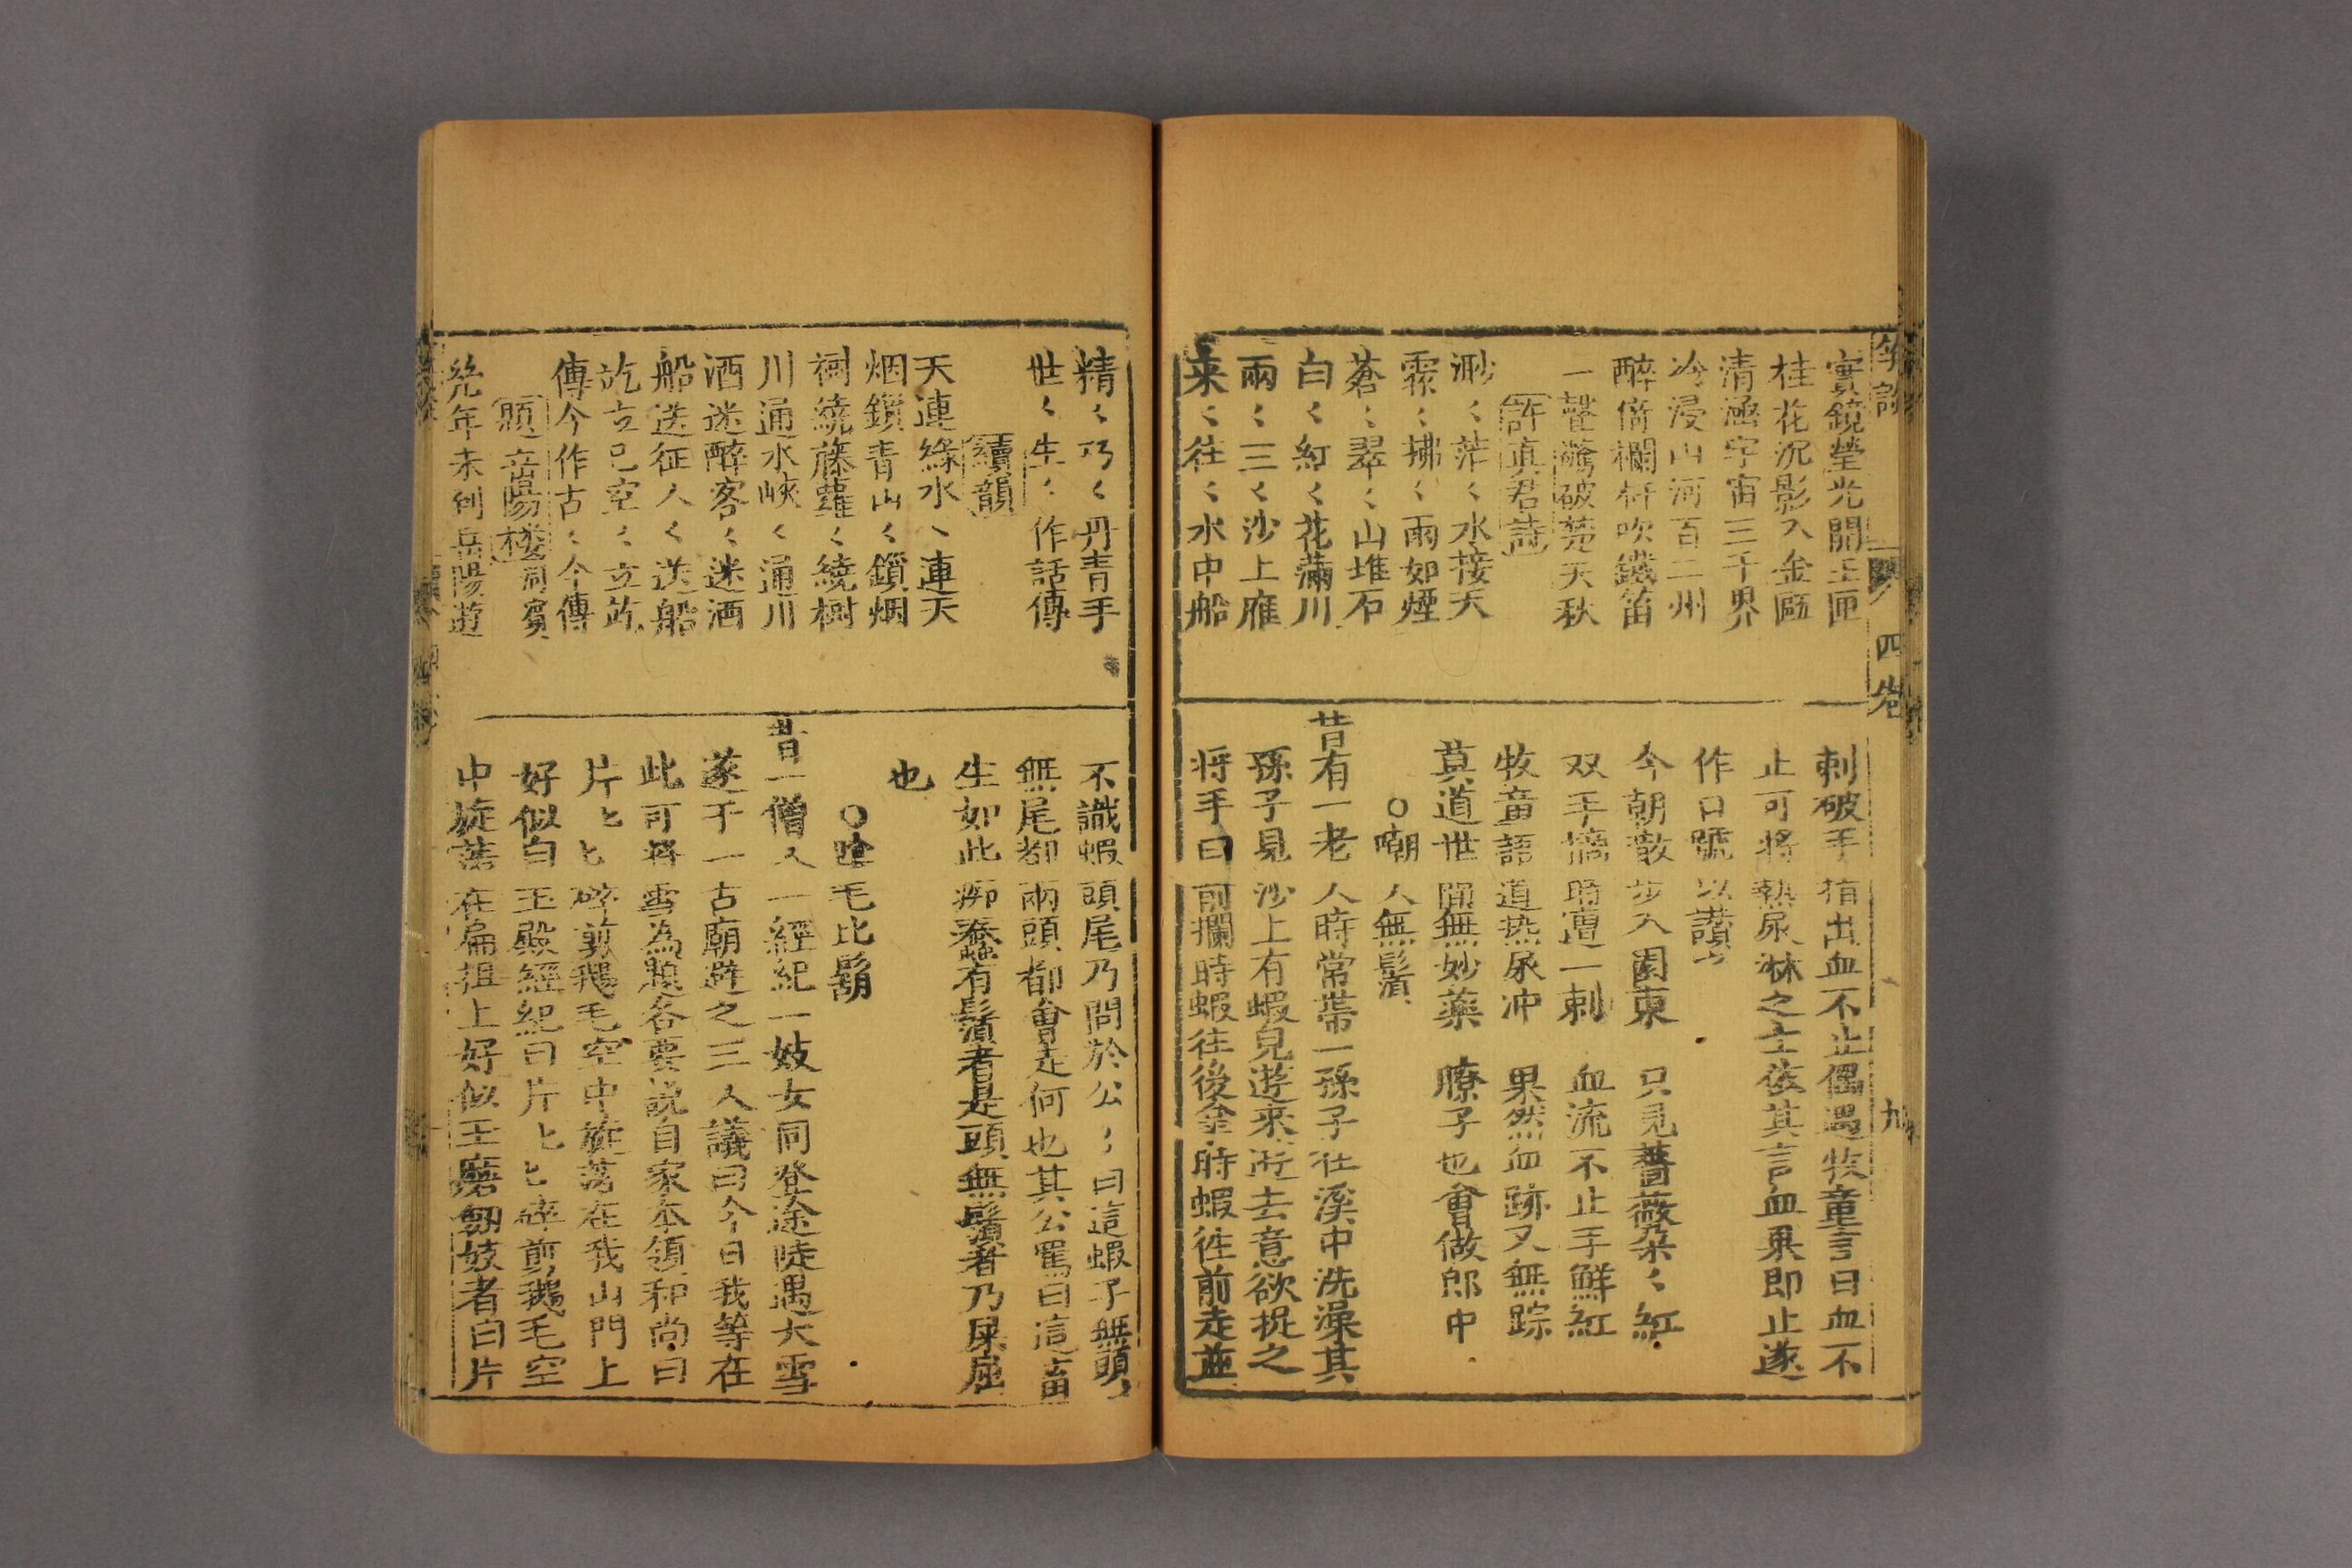 四卷
九
寳鏡瑩光開玉匣
桂花沉影入金甌
清涵宇宙三千界
冷浸山河百二州
醉倚欄杆吹鐵笛
一聲驚破楚天秋
許真君詩
渺〻茫〻水接天
霖〻拂〻雨如煙
蒼〻翠〻山堆石
白〻紅〻花滿川
兩〻三〻沙上雁
来〻往〻水中船
刺破手指出血不止偶遇牧童言曰血不
止可將熱尿淋之士依其言血果即止遂
作口號以讚
今朝散步入園東 只見薔薇朶〻紅
双手摘時遭一刺 血流不止手鮮紅
牧童語道热尿冲 果然血跡又無踪
莫道世間無妙藥 膫子也會做郎中
○嘲人無鬚
昔有一老人時常帶一孫子在溪中洗澡其
孫子見沙上有蝦兒遊来遊去意欲捉之
将手曰前攔時蝦往後金時蝦徃前走並
精〻巧〻丹青手
世〻生〻作話傳
續韻
天連綠水〻連天
烟鎖青山〻鎖烟
樹繞藤蘿〻繞樹
川通水峽〻通川
酒迷醉客〻迷酒
船送征人〻送船
訖立已空〻立訖
傳今作古〻今傳
題岳陽楼 洞賓
幾年未到岳陽遊
不識蝦頭尾乃問於公〻曰這蝦子無頭〻
無尾都兩頭都會走何也其公罵曰這畜
生如此痴蠢有鬚者是頭無鬚者乃屎屈
也
○嗆毛比鬍
昔一僧人一經紀一妓女同登途陡遇大雪
遂于一古廟避之三人議曰今日我等在
此可將雪為題各要說自家本領和尚曰
片ヒヒ碎剪鵝毛空中旋落在我山門上
好似白玉殿經紀曰片ヒヒ碎剪鵝毛空
中旋落在扁担上好似玉磨劒妓者曰片